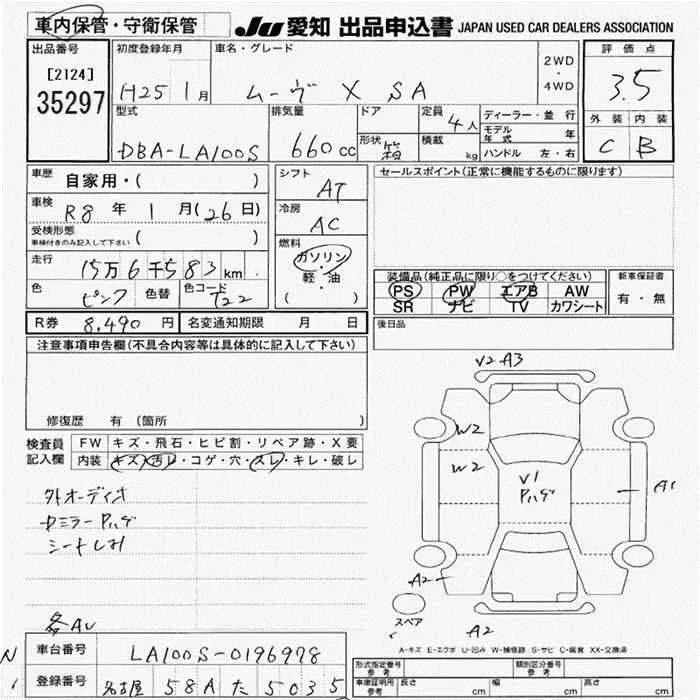 車内保管・守衛保管
JU 愛知 出品申込書 JAPAN USED CAR DEALERS ASSOCIATION
出品番号
[2124]
35297
初度登録年月
H25 1月
車名・グレード
ムーヴ X SA
2WD
・
4WD
評価点
3.5
外装 内装
C B
型式
DBA-LA100S
排気量
660cc
ドア
形状 箱
定員 4人
積載 kg
ディーラー・並行
モデル年式 年
ハンドル 左・右
車歴 自家用・( )
車検 R8年 1月(26日)
受検形態
車検付きのみ記入して下さい ( )
走行 15万6千583km
色 ピンク 色替 色コード T22
シフト
AT
冷房
AC
燃料
ガソリン
・
軽・油
( )
セールスポイント(正常に機能するものに限ります)
装備品(純正品に限り○をつけてください)
PS PW エアB AW
SR ナビ TV カワシート
新車保証書
有・無
R券 8,490円 名変通知期限 月 日
後日品
注意事項申告欄(不具合内容等は具体的に記入して下さい)
修復歴 有 (箇所 )
検査員
記入欄
FW キズ・飛石・ヒビ割・リペア跡・X要
内装 キズ・汚レ・コゲ・穴・スレ・キレ・破レ
外オーディオ
シートしみ
各AU
V2 A3
W2
W2
V1
A1
A2
A2
スペア
A-キズ E-エクボ U-凹み W-補修跡 S-サビ C-腐食 XX-交換済
車台番号 LA100S-0196978
登録番号 名古屋 58A た 5035
形式指定番号
参考
類別区分番号
参考
車庫証明用
参考
長さ cm 幅 cm 高さ cm